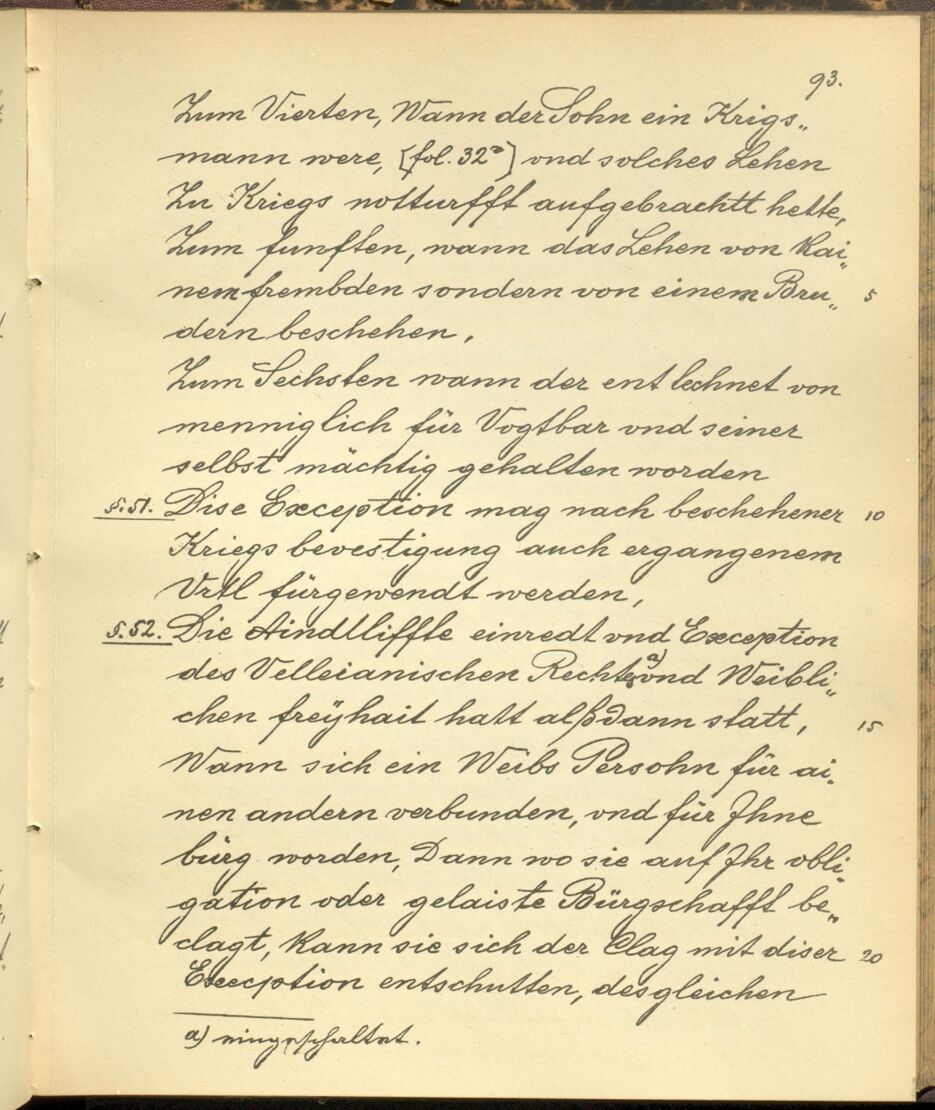 93.
Zum Vierten, Wann der Sohn ein Krigs„
mann were, [fol. 32ᵃ] vnd solches Lehen
Zu Kriegs notturfft aufgebrachtt hette,
Zum funften, wann das Lehen von Kai„
nem frembden sondern von einem Bru„ 5
dern beschehen.
Zum Sechsten wann der entlechnet von
menniglich für Vogtbar vnd seiner
selbst mächtig gehalten worden
§.51. Dise Exception mag nach beschehener 10
Kriegs bevestigung auch ergangenem
Vrtl fürgewendt werden,
§.52. Die Aindtliffte einredt vnd Exception
des Velleianischen Rechtens a) vnd Weibli„
chen freÿhait hatt alßdann statt, 15
Wann sich ein Weibs Persohn für ai„
nen andern verbunden, vnd für Jhne
bürg worden, Dann wo sie auf Jhr obli„
gation oder gelaiste Bürgschafft be„
clagt, Kann sie sich der Clag mit diser 20
Exception entschutten, desgleichen
a) eingeschaltet.